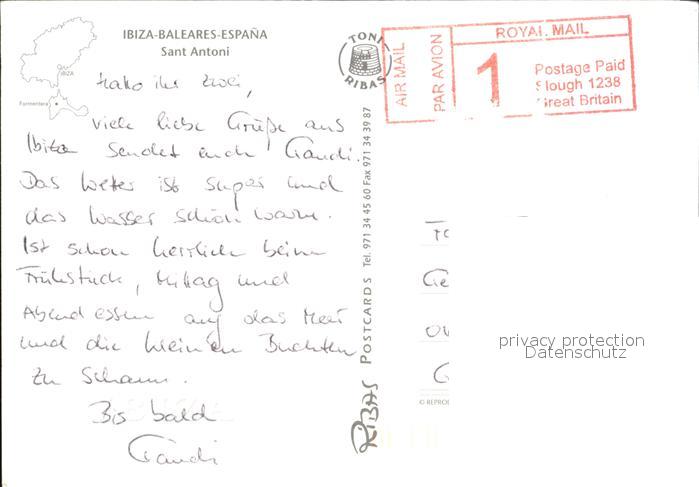 IBIZA-BALEARES-ESPAÑA
Sant Antoni
IBIZA
Formentera
Hallo ihr zwei,
viele liebe Grüße aus
Ibiza sendet euch
Das Wetter ist super und
das Wasser schön warm.
Ist schon herrlich beim
Frühstück, Mittag und
Abendessen auf das Meer
und die kleinen Buchten
zu schauen.
Bis bald
TONI
RIBAS
RIBAS POSTCARDS Tel. 971 34 45 60 Fax 971 34 39 87
AIR MAIL
PAR AVION
ROYAL MAIL
1
Postage Paid
Slough 1238
Great Britain
privacy protection
Datenschutz
© REPROD